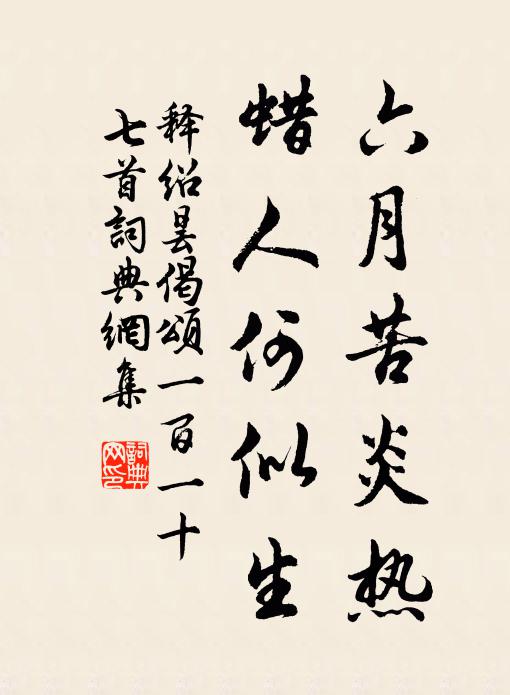 六月苦炎热
蜡人何似生
释绍昙偈颂一百一十
七首詞典網集
詞典
网印